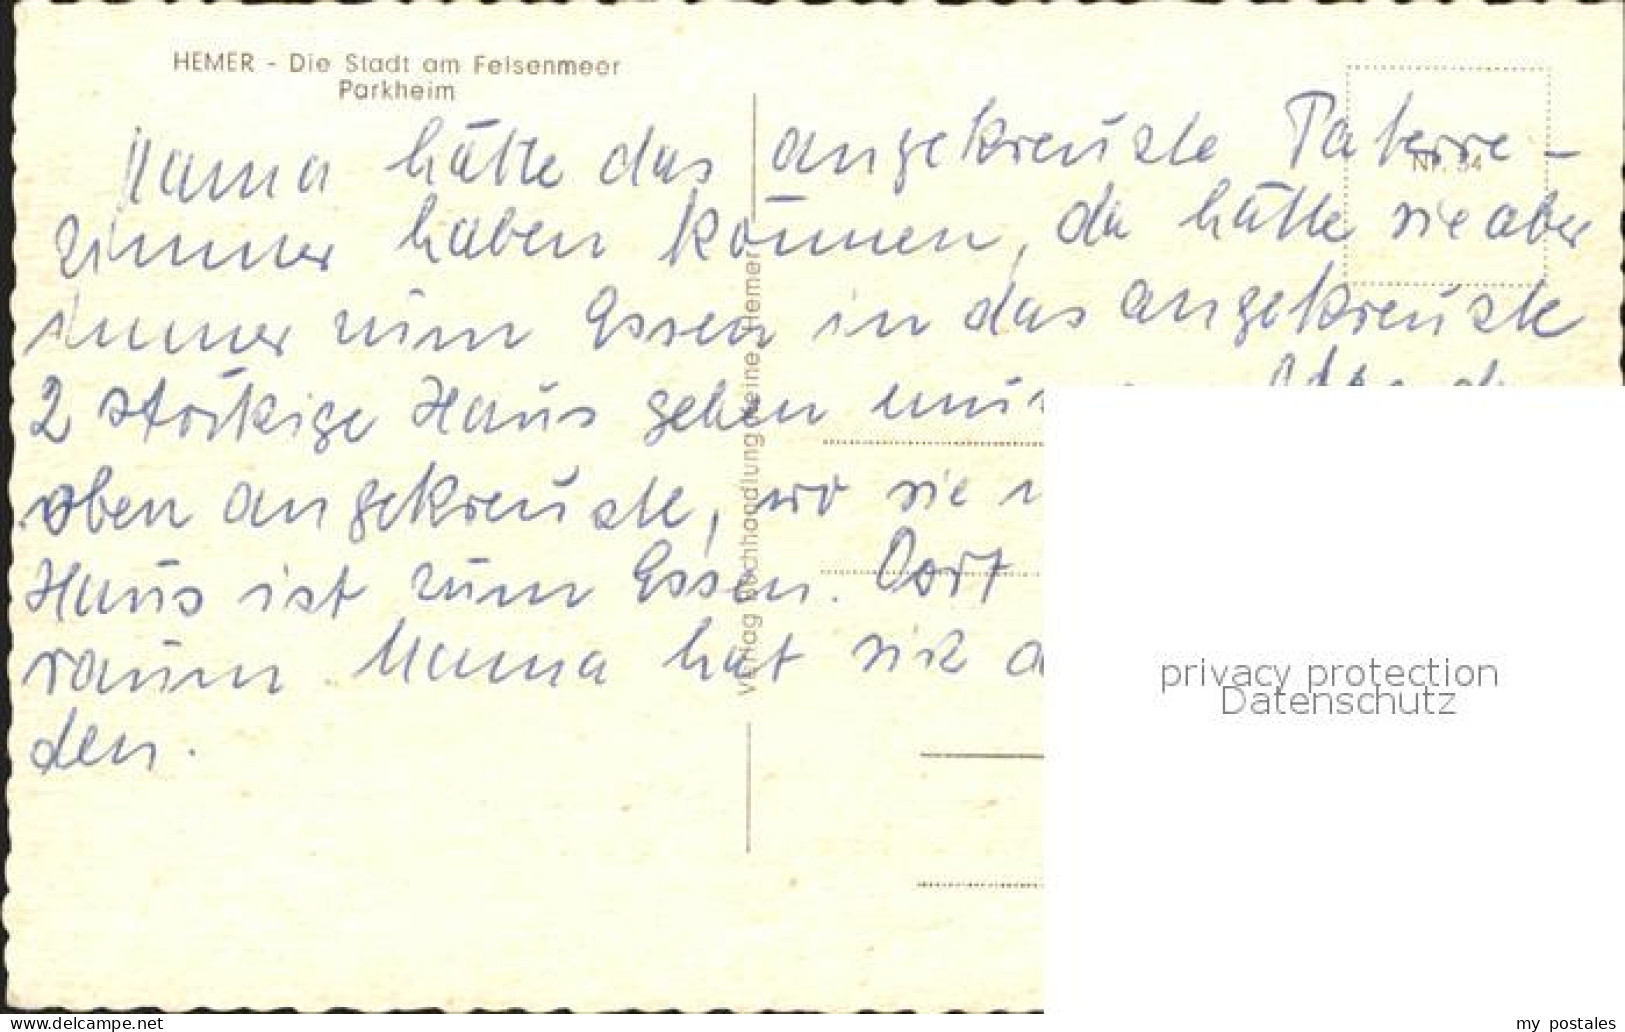 HEMER - Die Stadt am Felsenmeer
Parkheim
Nr. 34
Mama hätte das angekreuzte Paterre-
zimmer haben können, da hätte sie aber
immer zum Essen in das angekreuzte
2 störkige Haus gehen
oben angekreuzte, wo sie
Haus ist zum Essen. Dort
raum Mama hat sich
den.
Verlag Buchhandlung Heine Hemer
privacy protection
Datenschutz
www.delcampe.net
my_postales